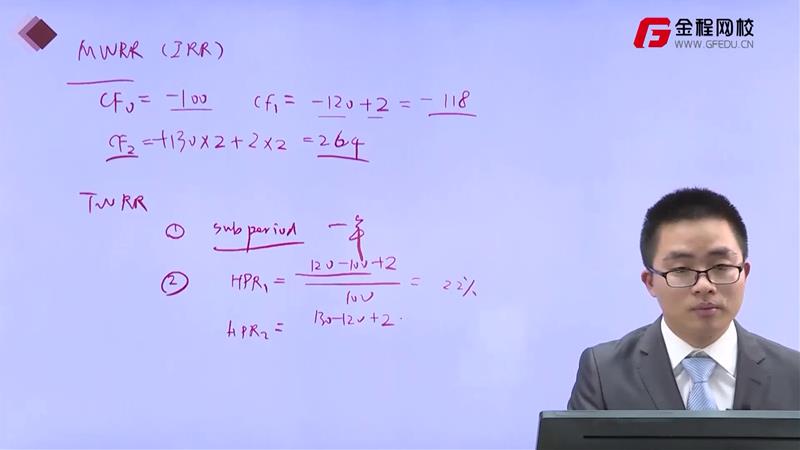 金程网校
WWW.GFEDU.CN
MWRR (IRR)
CF₀ = -100  CF₁ = -120+2 = -118
CF₂ = +130×2+2×2 = 264
TWRR
① subperiod 一年
② HPR₁ = (120-100+2)/100 = 22%
HPR₂ = 130-120+2